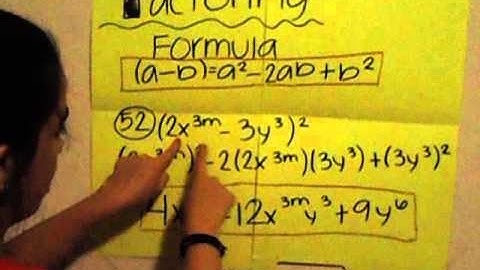 Factoring
Formula
(a-b)=a²-2ab+b²
52 (2x³ᵐ - 3y³)²
- 2(2x³ᵐ)(3y³)+(3y³)²
4x 12x³ᵐy³ + 9y⁶